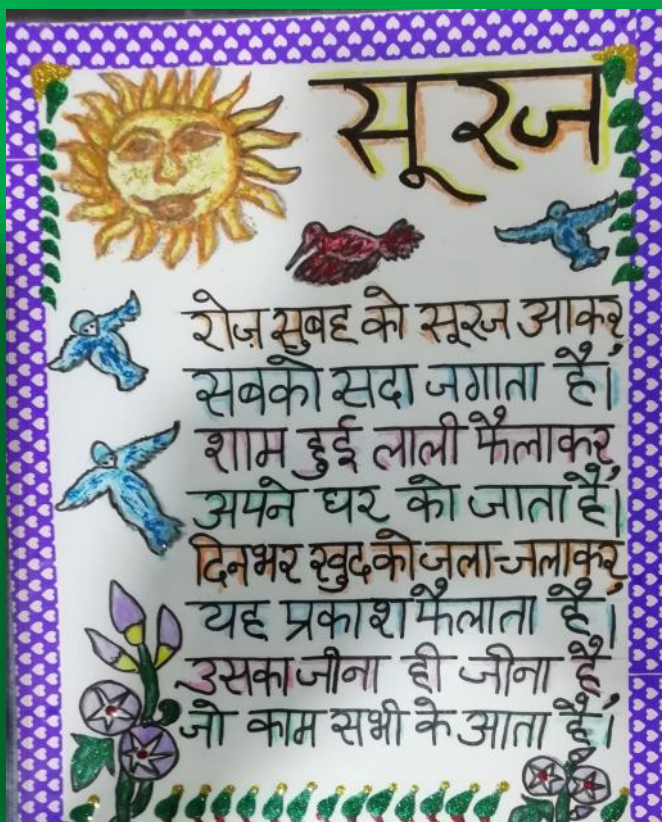 सूरज
रोज़ सुबह को सूरज आकर
सबको सदा जगाता है।
शाम हुई लाली फैलाकर
अपने घर को जाता है।
दिनभर खुद को जला-जलाकर
यह प्रकाश फैलाता है।
उसका जीना ही जीना है
जो काम सभी के आता है।